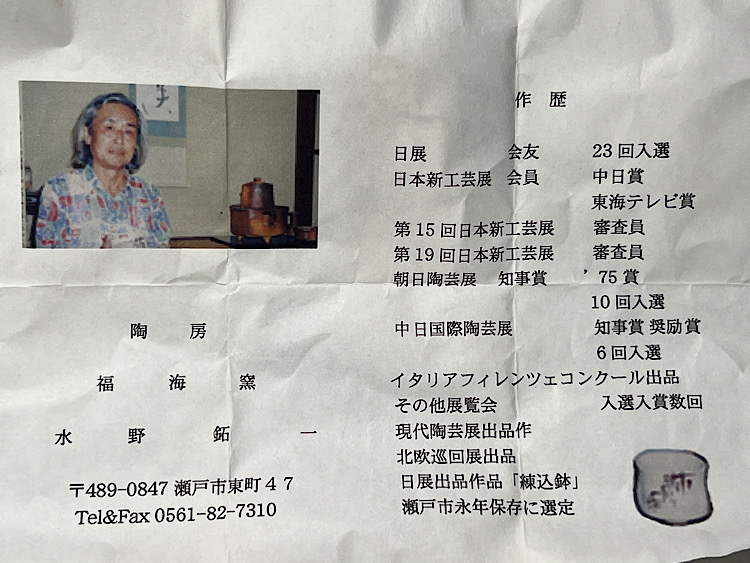 陶房
福海窯
水野鉐一
〒489-0847 瀬戸市東町47
Tel&Fax 0561-82-7310
作歴
日展 会友 23回入選
日本新工芸展 会員 中日賞
東海テレビ賞
第15回日本新工芸展 審査員
第19回日本新工芸展 審査員
朝日陶芸展 知事賞 ’75賞
10回入選
中日国際陶芸展 知事賞 奨励賞
6回入選
イタリアフィレンツェコンクール出品
その他展覧会 入選入賞数回
現代陶芸展出品作
北欧巡回展出品
日展出品作品「練込鉢」
瀬戸市永年保存に選定